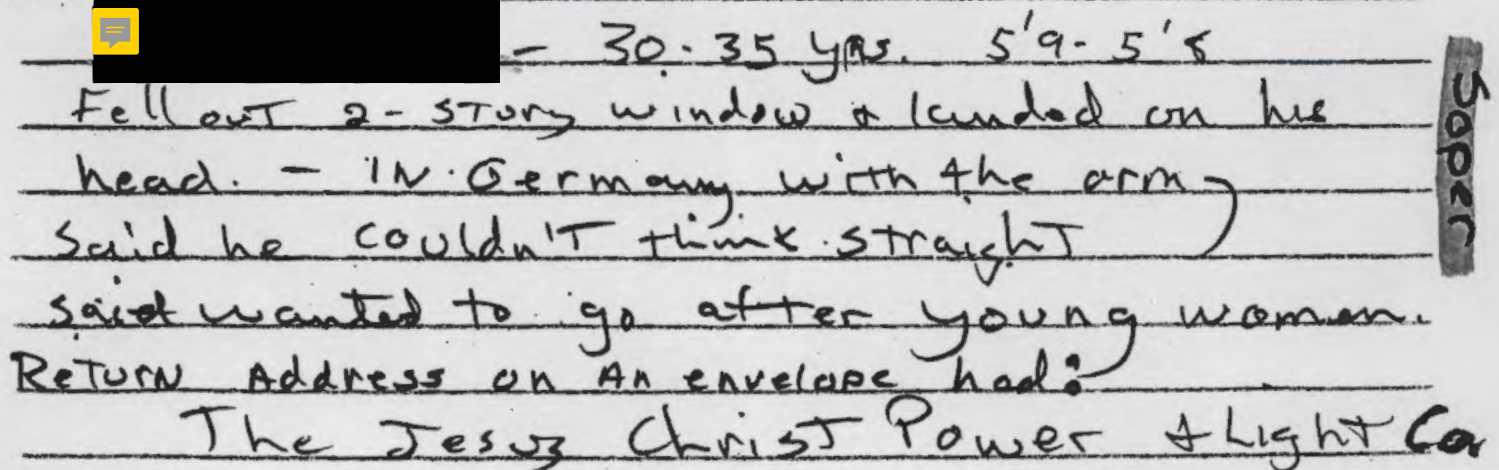 - 30-35 yrs. 5'9-5'8
Fell out 2-story window & landed on his
head. - IN Germany with the army
Said he couldn't think straight
said wanted to go after young women.
Return Address on An envelope had:
The Jesus Christ Power & Light Co
Soper